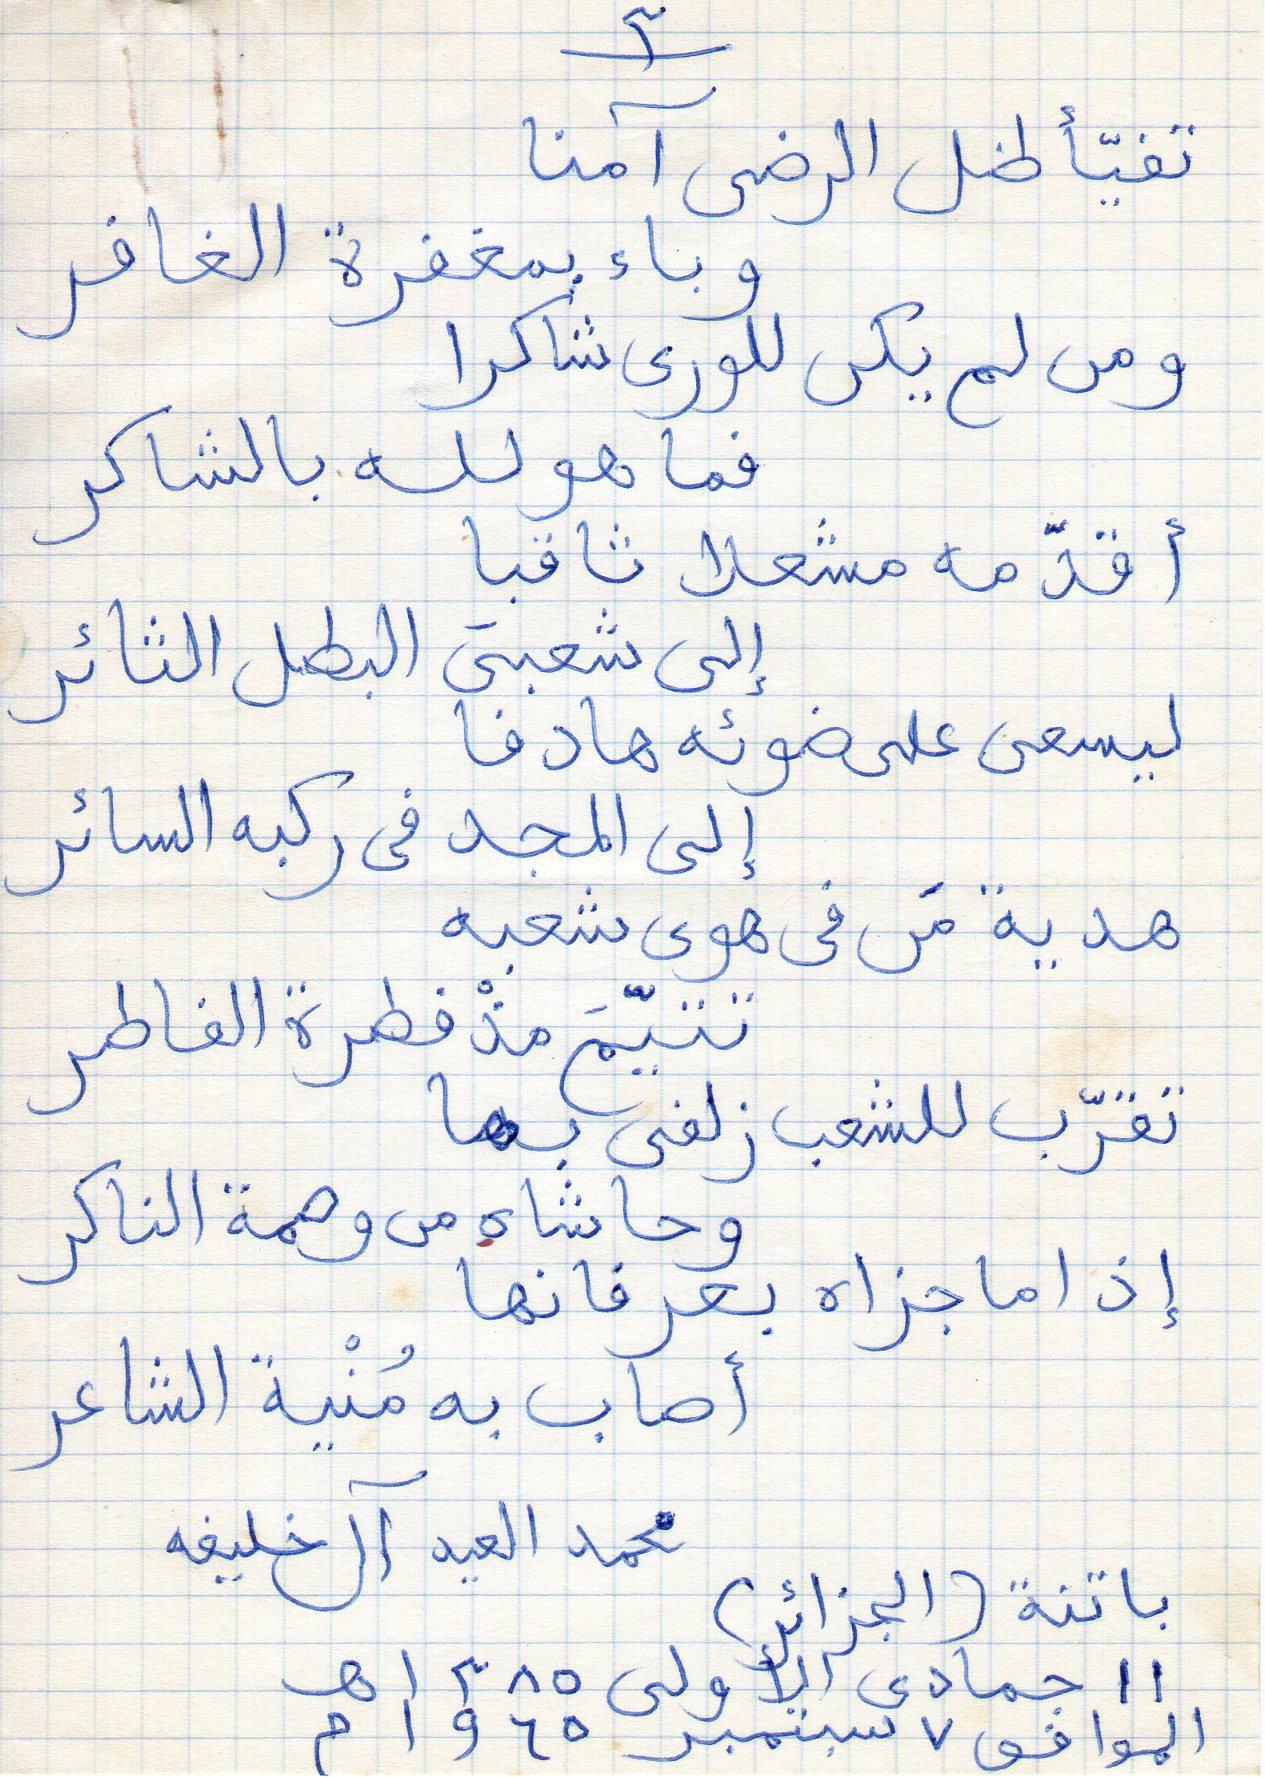 ٣
تفيّأ ظل الرضى آمنا
وباء بمغفرة الغافر
ومن لم يكن للورى شاكرا
فما هو لله بالشاكر
أقدّمه مشعلا ثاقبا
إلى شعبيَ البطل الثائر
ليسعى على ضوئه هادفا
إلى المجد فى ركبه السائر
هدية مَن فى هوى شعبه
تتيّمَ مذْ فطرة الفاطر
تقرّب للشعب زلفى بها
وحاشاه من وصمة الناكر
إذا ما جزاه بعرفانها
أصاب به مُنْية الشاعر
محمد العيد آل خليفه
باتنة (الجزائر)
١١ جمادى الأولى ١٣٨٥ هـ
الموافق ٧ سبتمبر ١٩٦٥ م